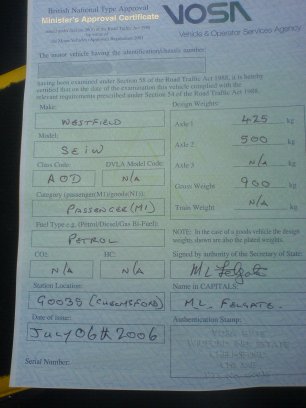 British National Type Approval
Minister's Approval Certificate
VOSA
Vehicle & Operator Services Agency
issued under Section 58(1) of the Road Traffic Act 1988
The motor vehicle having the identification/chassis number
having been examined under Section 58 of the Road Traffic Act 1988, it is hereby
certified that on the date of the examination this vehicle complied with the
relevant requirements prescribed under Section 54 of the Road Traffic Act 1988.
Make:
WESTFIELD
Model:
SEIW
Class Code:
DVLA Model Code:
AOD
N/A
Category (passenger(M1)/goods(N1)):
PASSENGER (M1)
Fuel Type e.g. (Petrol/Diesel/Gas Bi-Fuel):
PETROL
CO2:
HC:
N/A
N/A
Station Location:
90035 (CHELMSFORD)
Date of issue:
JULY 06th 2006
Serial Number:
Design Weights:
Axle 1
425
kg
Axle 2
500
kg
Axle 3
N/A
kg
Gross Weight
900
kg
Train Weight
N/A
kg
NOTE: In the case of a goods vehicle the design
weights shown are also the plated weights.
Signed by authority of the Secretary of State:
ML Felgate
Name in CAPITALS:
M.L. FELGATE.
Authentication Stamp:
CHELMSFORD